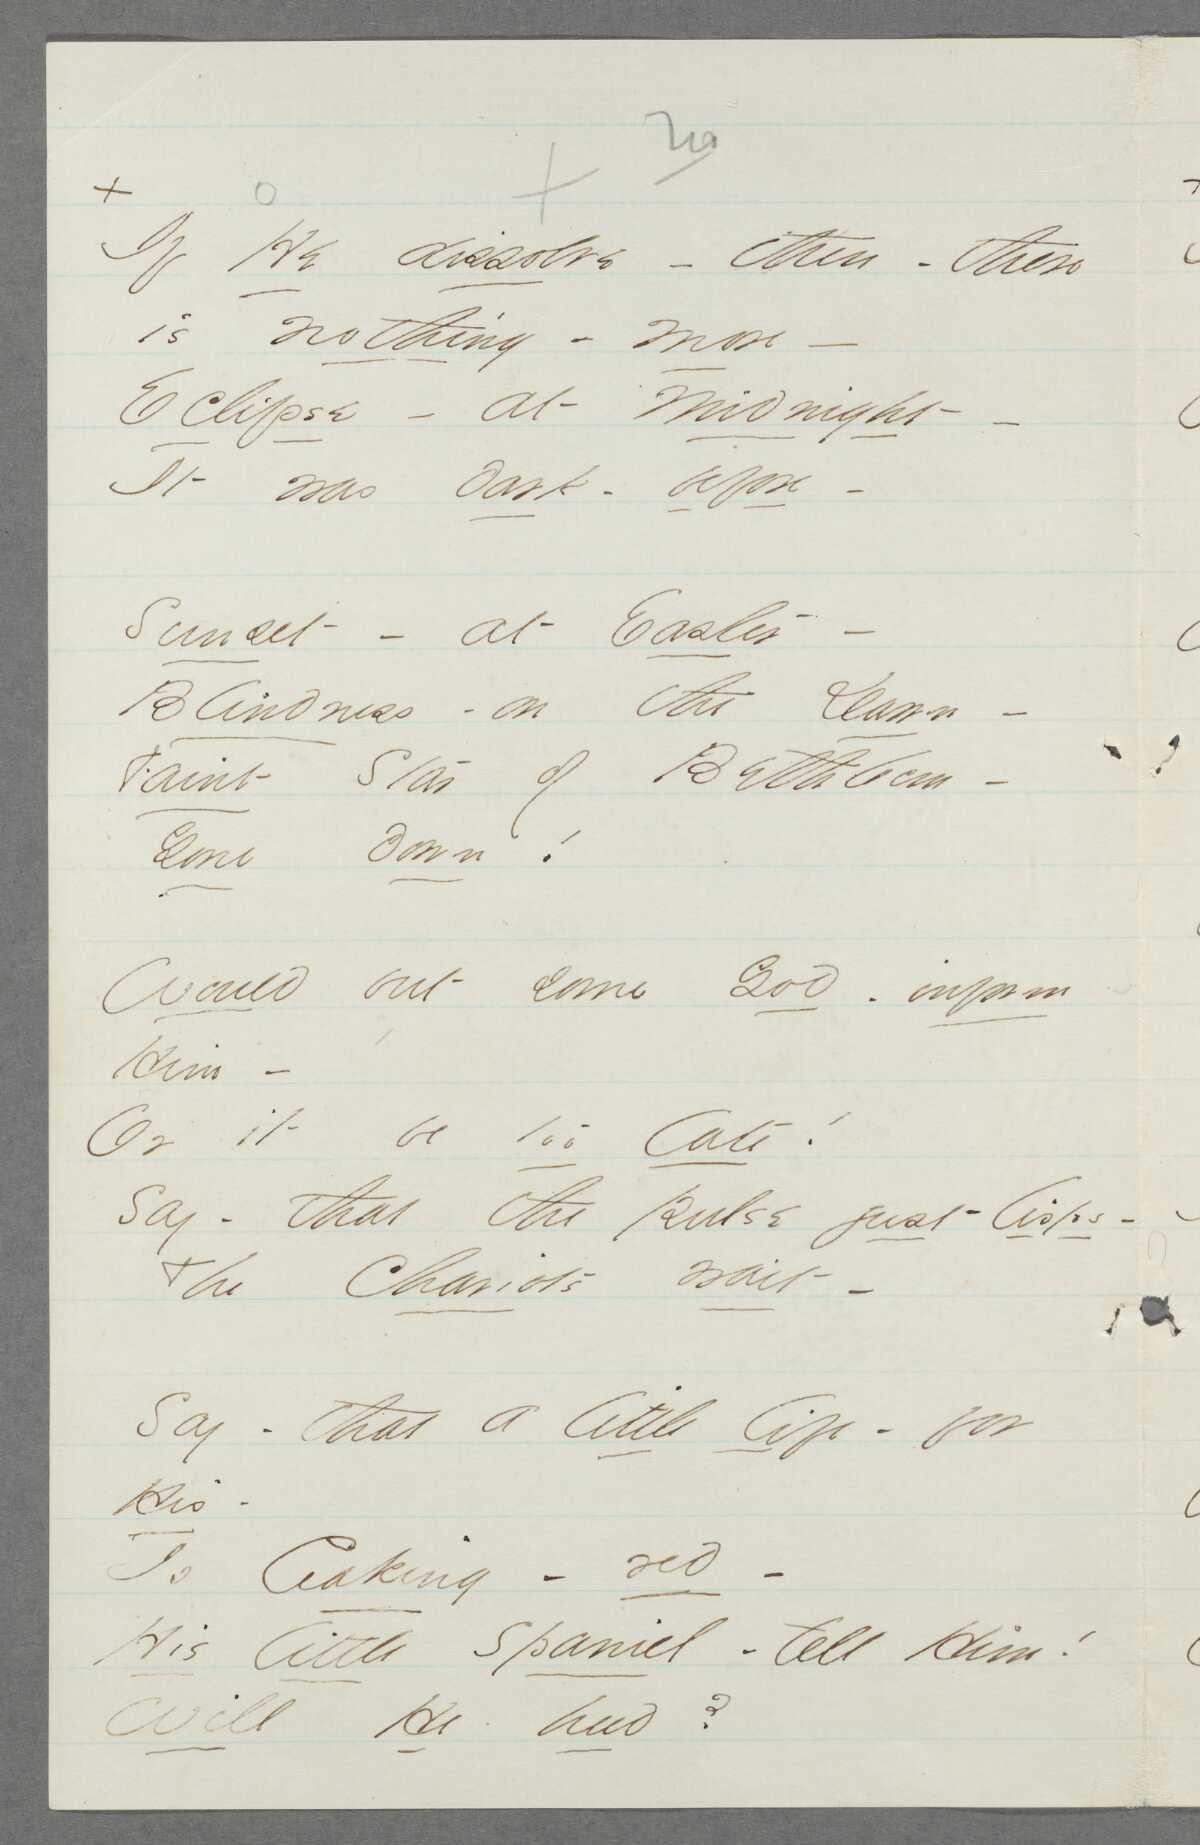 If He dissolve – then – there
is nothing – more –
Eclipse – at Midnight –
It was dark – before –
Sunset – at Easter –
Blindness – on the Dawn –
Faint Star of Bethlehem –
Gone down!
Would but some God – inform
Him –
Or it be too late!
Say – that the pulse just lisps –
The Chariots wait –
Say – that a little life – for
His –
Is leaking – red –
His little Spaniel – tell Him!
Will He heed?